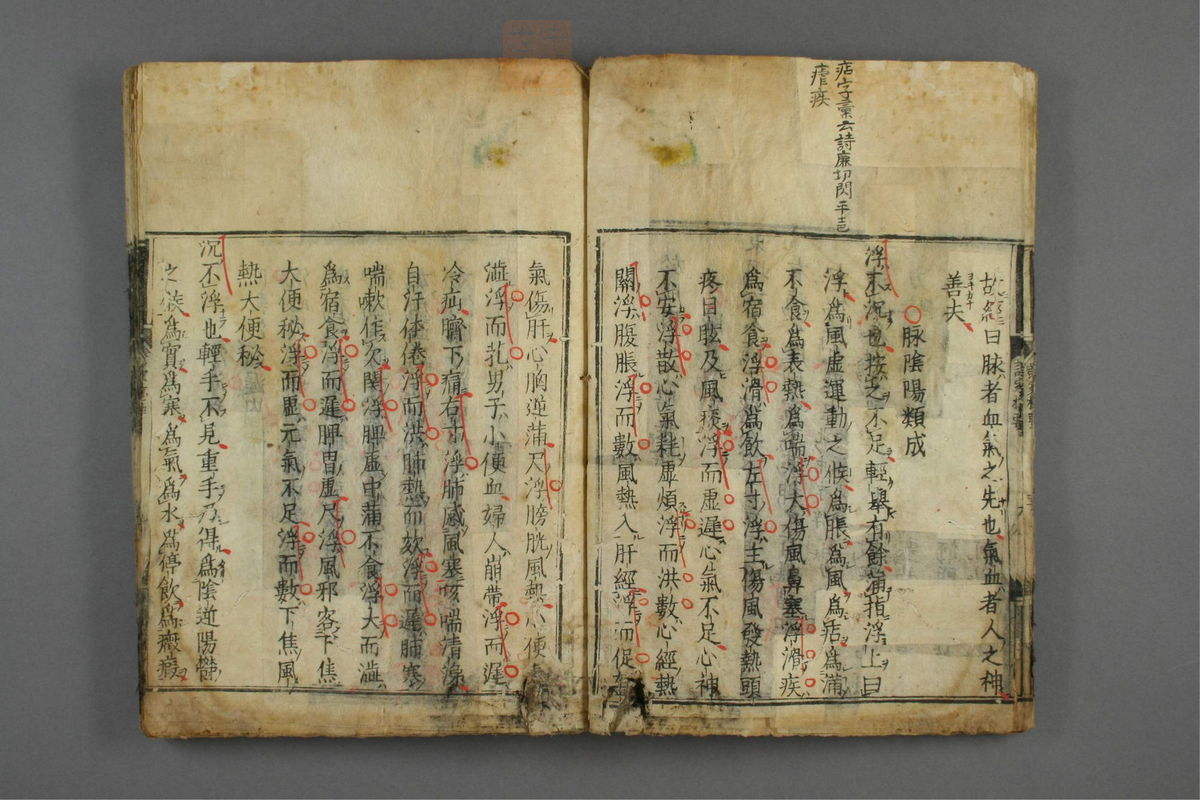 痁字彙云詩廉切閃平聲
瘧疾
故經曰脉者血氣之先也氣血者人之神
善夫
脉陰陽類成
浮不沉也按之不足輕舉有餘滿指浮上曰
浮爲風虚運動之候爲脹爲風爲痞爲滿
不食爲表熱爲喘浮大傷風鼻塞浮滑疾
爲宿食浮滑爲飲左寸浮主傷風發熱頭
疼目眩及風痰浮而虚遲心氣不足心神
不安浮散心氣耗虚煩浮而洪數心經熱
關浮腹脹浮而數風熱入肝經浮而促
氣傷肝心胸逆滿尺浮膀胱風熱小便
澁浮而芤男子小便血婦人崩帶浮而遲
冷疝臍下痛右寸浮肺感風寒咳喘清涕
自汗体倦浮而洪肺熱而欬浮而遲肺寒
喘嗽作欠關浮脾虚中滿不食浮大而澁
爲宿食浮而遲脾胃虚尺浮風邪客下焦
大便秘浮而虚元氣不足浮而數下焦風
熱大便秘
沉不浮也輕手不見重手乃得爲陰逆陽欝
之候爲實爲寒爲氣爲水爲停飲爲癥瘕